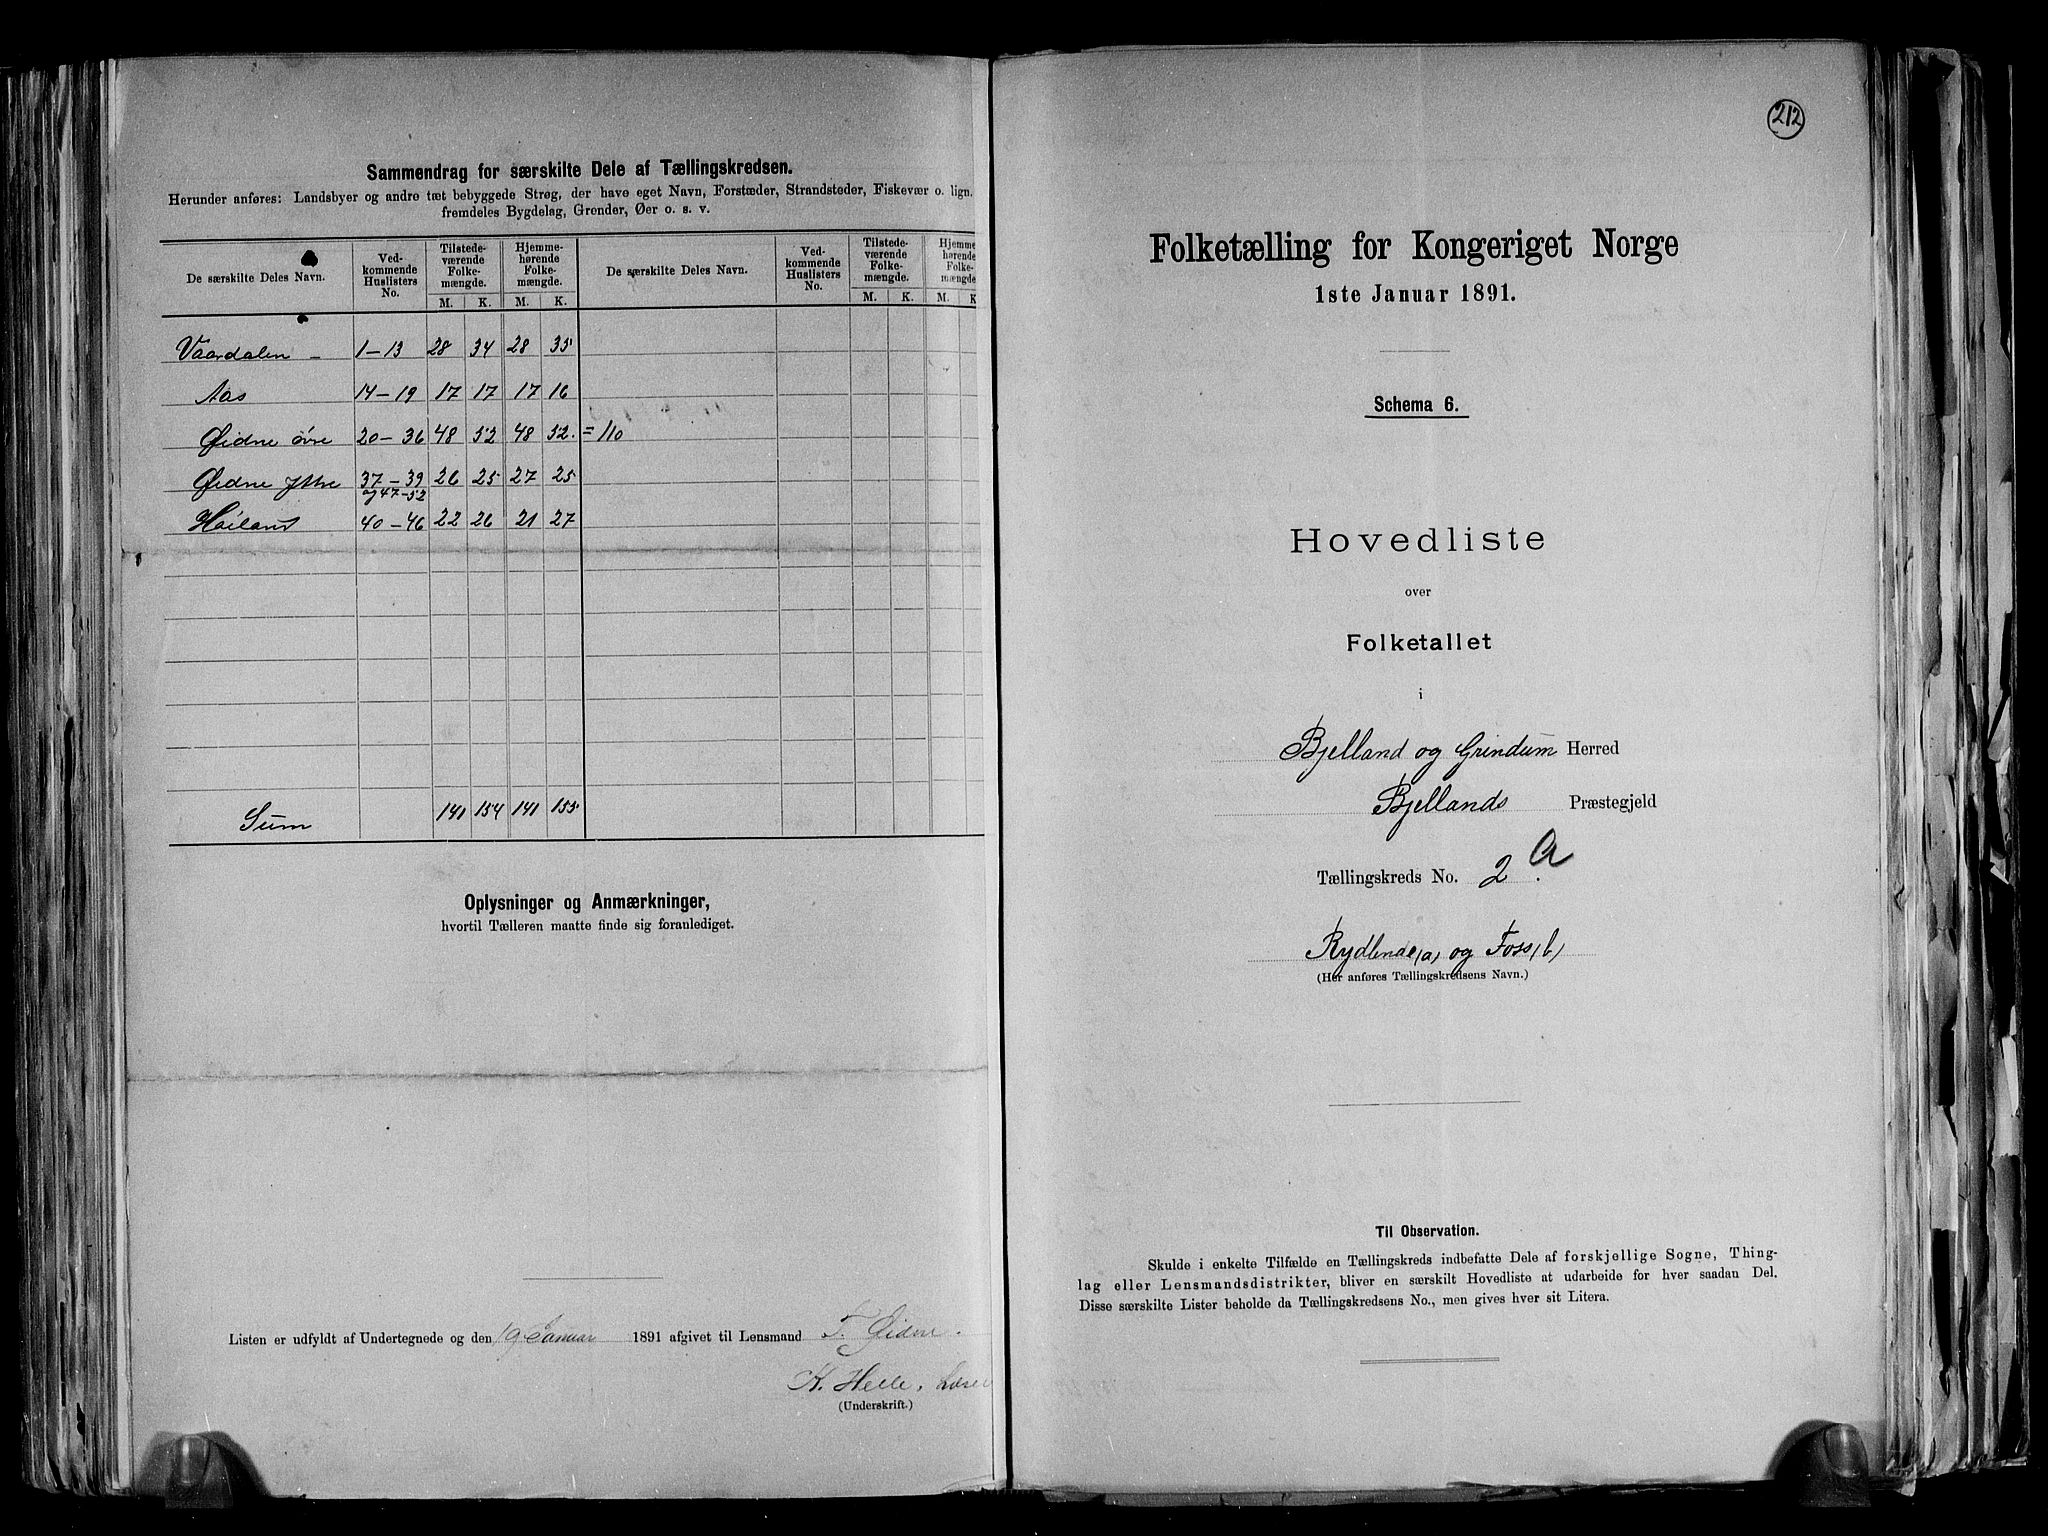 Sammendrag for særskilte Dele af Tællingskredsen.
Herunder anføres: Landsbyer og andre tæt bebyggede Strøg, der have eget Navn, Forstæder, Strandsteder, Fiskevær o. lign.
fremdeles Bygdelag, Grender, Øer o. s. v.
De særskilte Deles Navn. Ved-kommende Huslisters No. Tilstede-værende Folke-mængde. Hjemme-hørende Folke-mængde. De særskilte Deles Navn. Ved-kommende Huslisters No. Tilstede-værende Folke-mængde. Hjemme-hørende Folke-mængde.
M. K. M. K. M. K. M. K
Vaardalen – 1–13 28 34 28 35
Aas 14–19 17 17 17 16
Øidne øvre 20–36 48 52 48 52. = 110
Øidne Ytre 37–39 26 25 27 25
og 47–52
Høiland 40–46 22 26 21 27
Sum 141 154 141 155
Oplysninger og Anmærkninger,
hvortil Tælleren maatte finde sig foranlediget.
Listen er udfyldt af Undertegnede og den 19 Januar 1891 afgivet til Lensmand T. Øidne.
K. Heile,
(Underskrift.)
212
Folketælling for Kongeriget Norge
1ste Januar 1891.
Schema 6.
Hovedliste
over
Folketallet
i
Bjelland og Grindum Herred
Bjellands Præstegjeld
Tællingskreds No. 2 a.
Rydlende (a) og Foss (b)
(Her anføres Tællingskredsens Navn.)
Til Observation.
Skulde i enkelte Tilfælde en Tællingskreds indbefatte Dele af forskjellige Sogne, Thing-
lag eller Lensmandsdistrikter, bliver en særskilt Hovedliste at udarbeide for hver saadan Del.
Disse særskilte Lister beholde da Tællingskredsens No., men gives hver sit Litera.